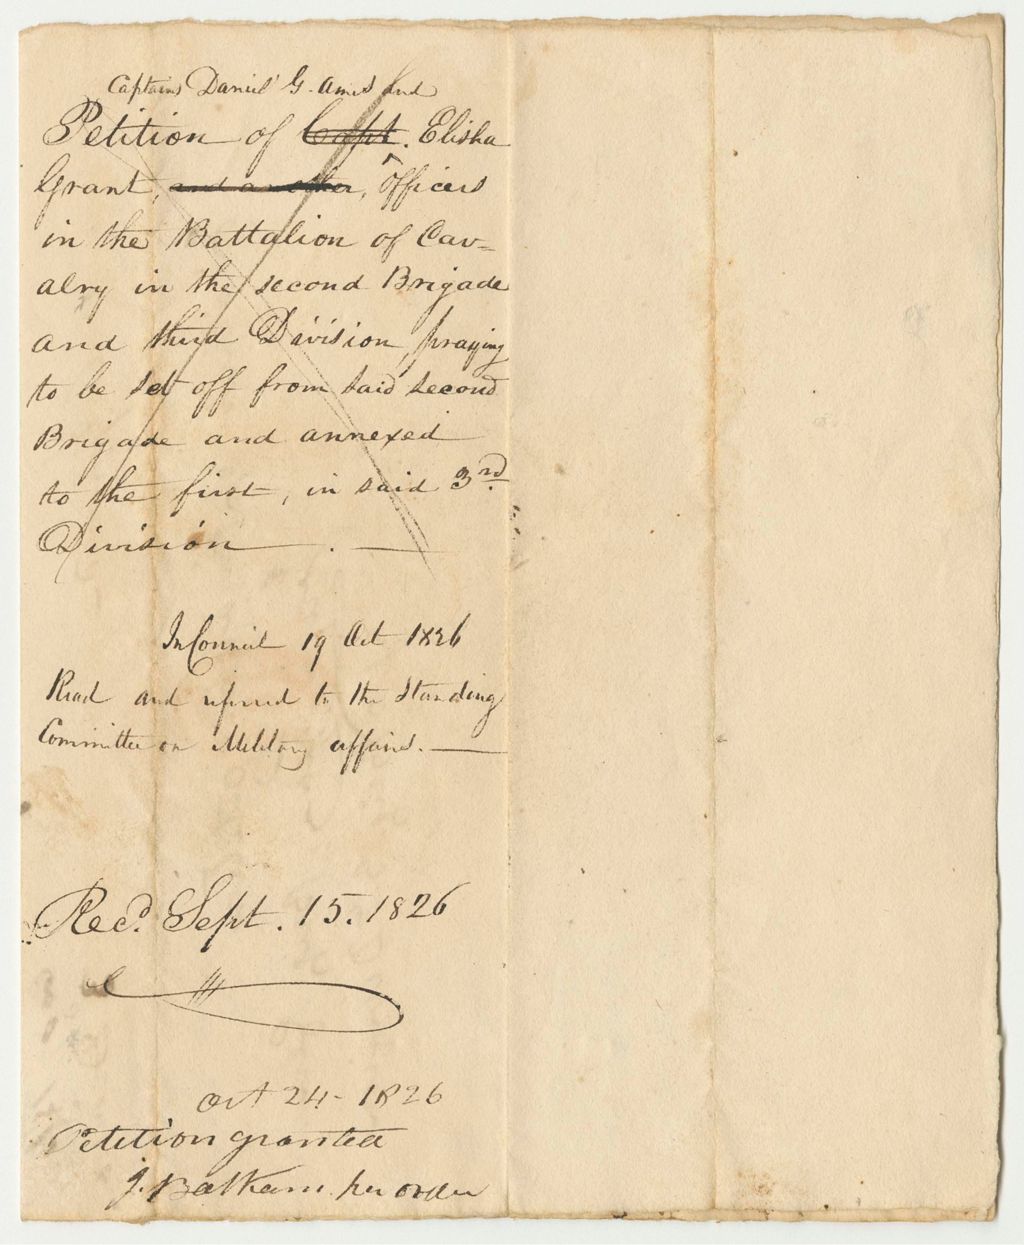 Captains Daniel G. Ames and
Petition of Capt. Elisha
Grant, and another, Officers
in the Battalion of Cav=
alry in the second Brigade
and third Division, praying
to be set off from said second
Brigade and annexed
to the first, in said 3rd.
Division.
In Council 19 Oct 1826
Read and referred to the Standing
Committee on Military affairs.
Recd. Sept. 15. 1826
Oct 24- 1826
Petition granted
J. Balkam per order